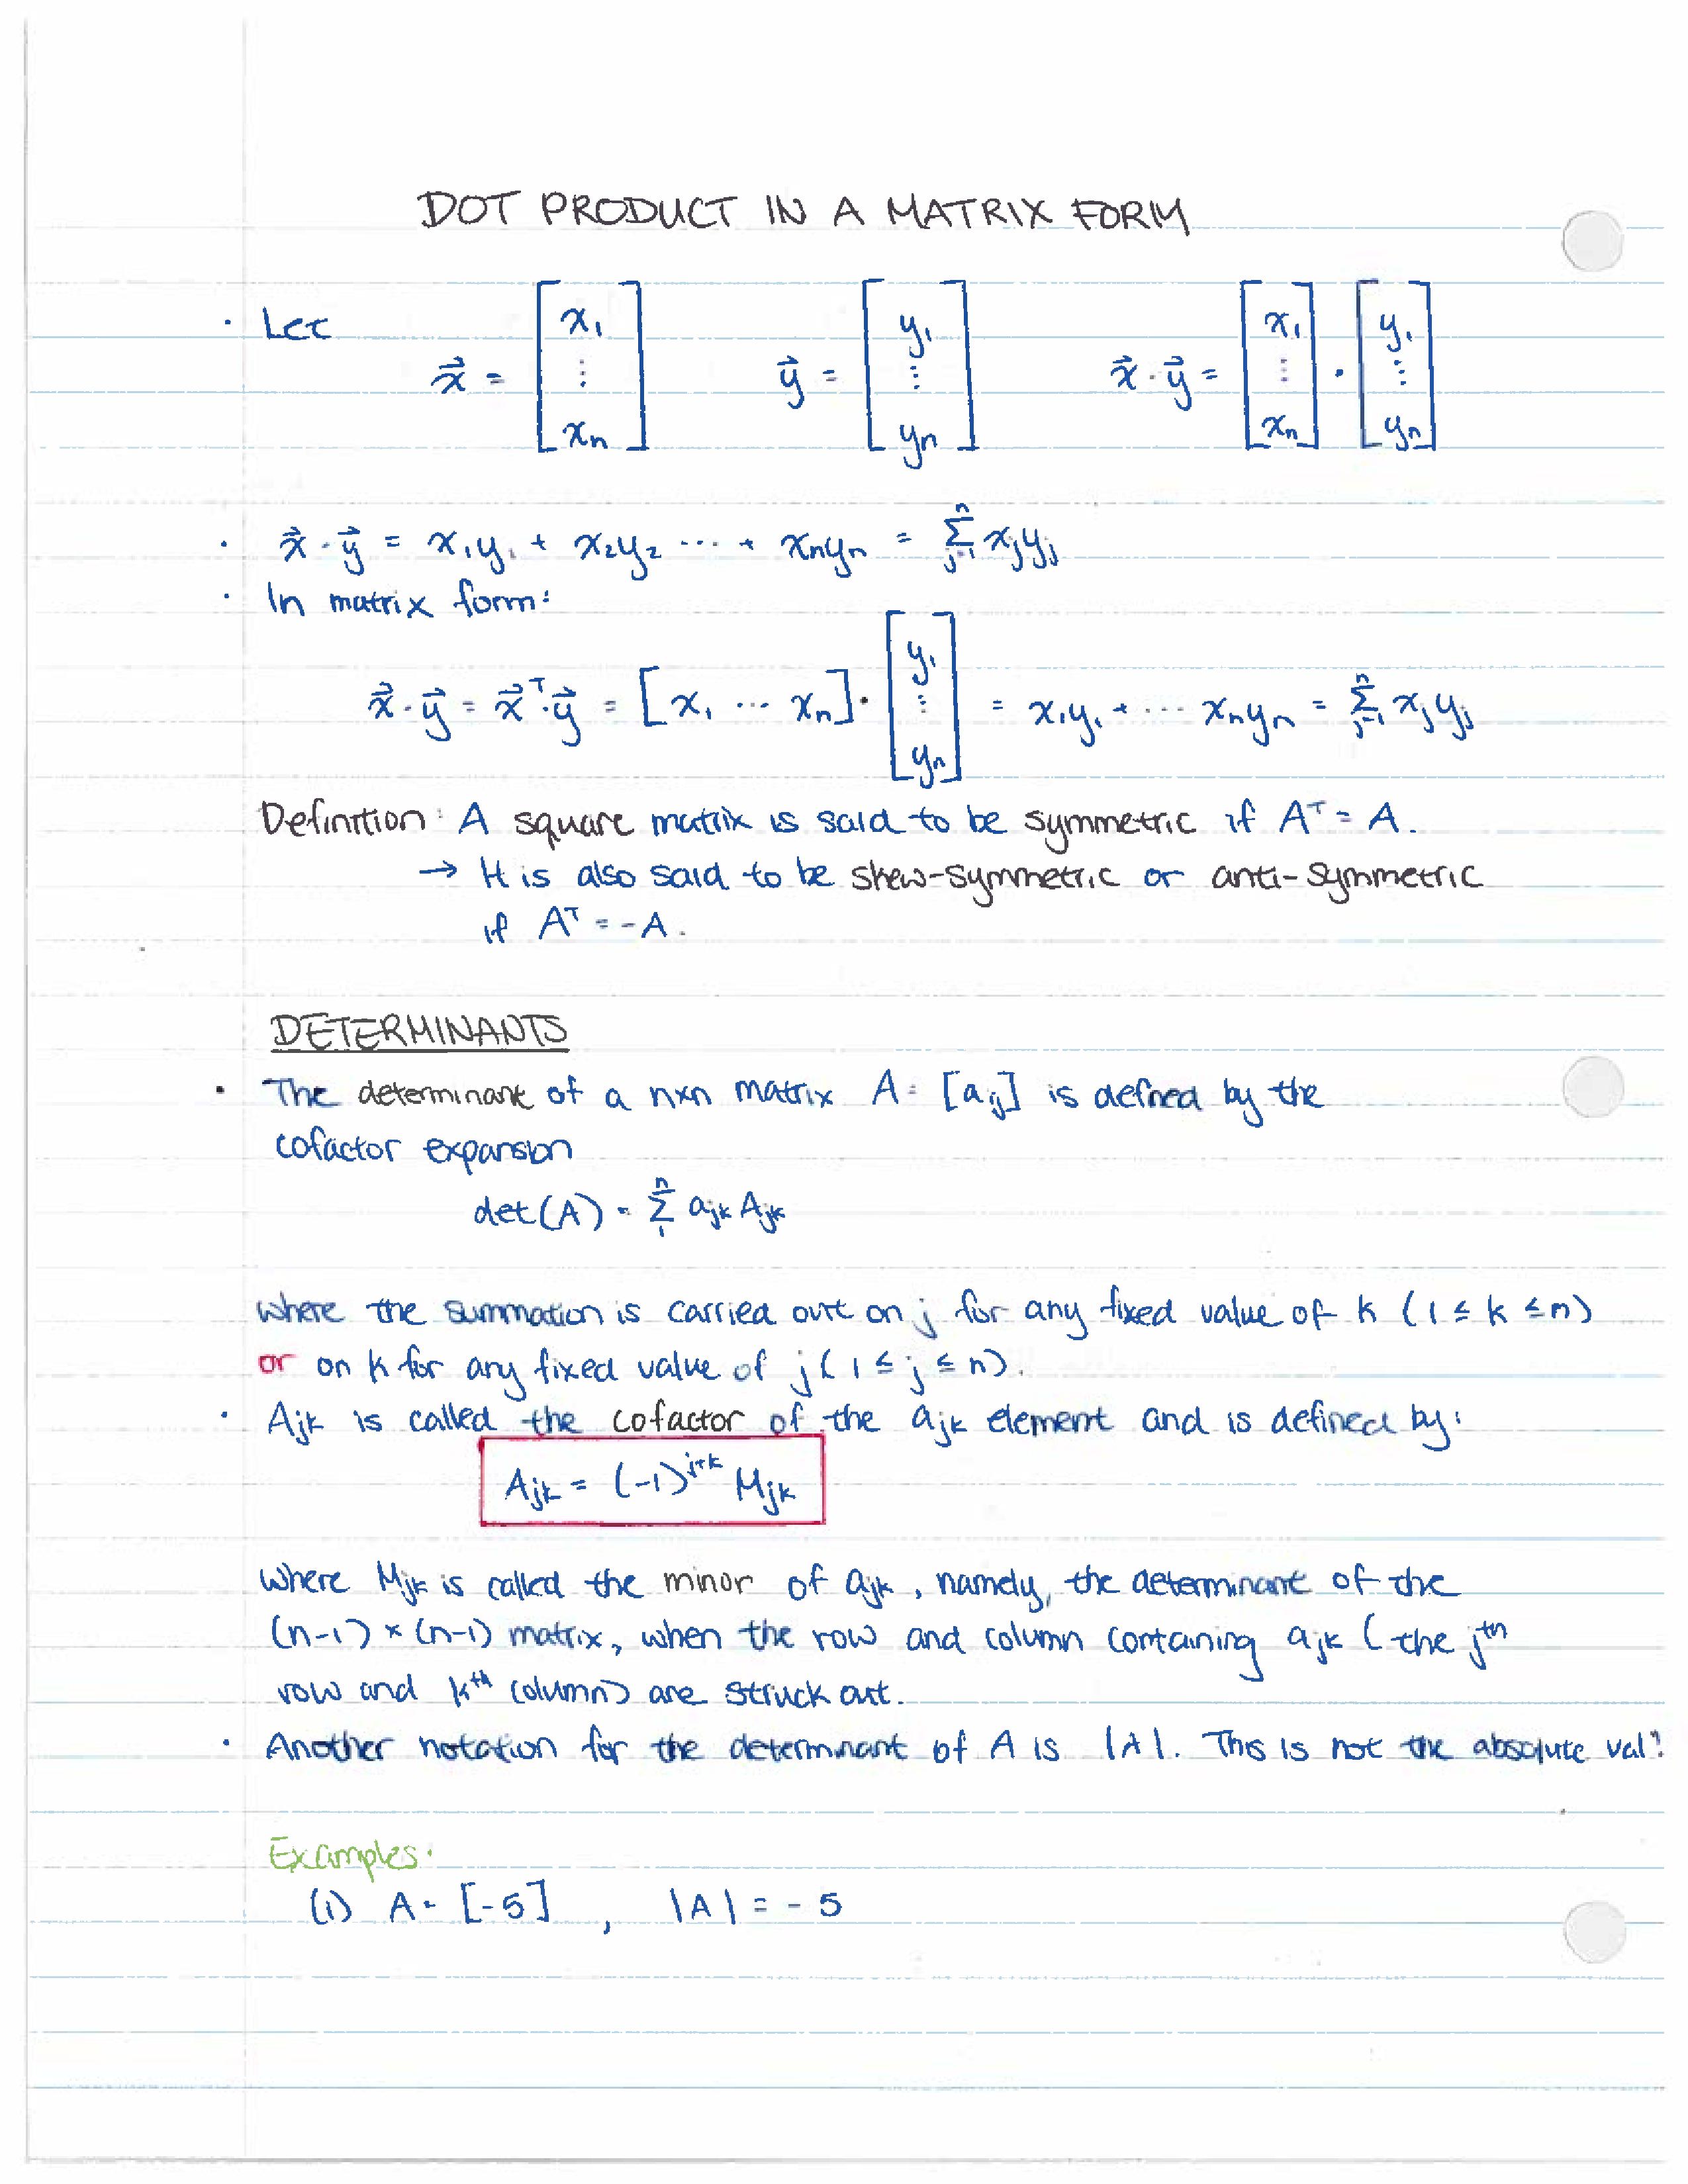 DOT PRODUCT IN A MATRIX FORM
· Let x⃗ = [x₁ ⋮ xₙ] y⃗ = [y₁ ⋮ yₙ] x⃗ · y⃗ = [x₁ ⋮ xₙ] · [y₁ ⋮ yₙ]
· x⃗ · y⃗ = x₁y₁ + x₂y₂ ... + xₙyₙ = Σⁿⱼ₌₁ xⱼyⱼ
· In matrix form:
x⃗ · y⃗ = x⃗ᵀ · y⃗ = [x₁ ... xₙ] · [y₁ ⋮ yₙ] = x₁y₁ + ... xₙyₙ = Σⁿⱼ₌₁ xⱼyⱼ
Definition: A square matrix is said to be symmetric if Aᵀ = A.
→ It is also said to be skew-symmetric or anti-symmetric
if Aᵀ = -A.
DETERMINANTS
· The determinant of a nxn matrix A = [aᵢⱼ] is defined by the
cofactor expansion
det(A) = Σⁿ₁ aⱼₖ Aⱼₖ
where the summation is carried out on j for any fixed value of k (1 ≤ k ≤ n)
or on k for any fixed value of j (1 ≤ j ≤ n).
· Aⱼₖ is called the cofactor of the aⱼₖ element and is defined by:
Aⱼₖ = (-1)ʲ⁺ᵏ Mⱼₖ
where Mⱼₖ is called the minor of aⱼₖ, namely, the determinant of the
(n-1) × (n-1) matrix, when the row and column containing aⱼₖ (the jᵗʰ
row and kᵗʰ column) are struck out.
· Another notation for the determinant of A is |A|. This is not the absolute val!
Examples:
(i) A = [-5] , |A| = -5